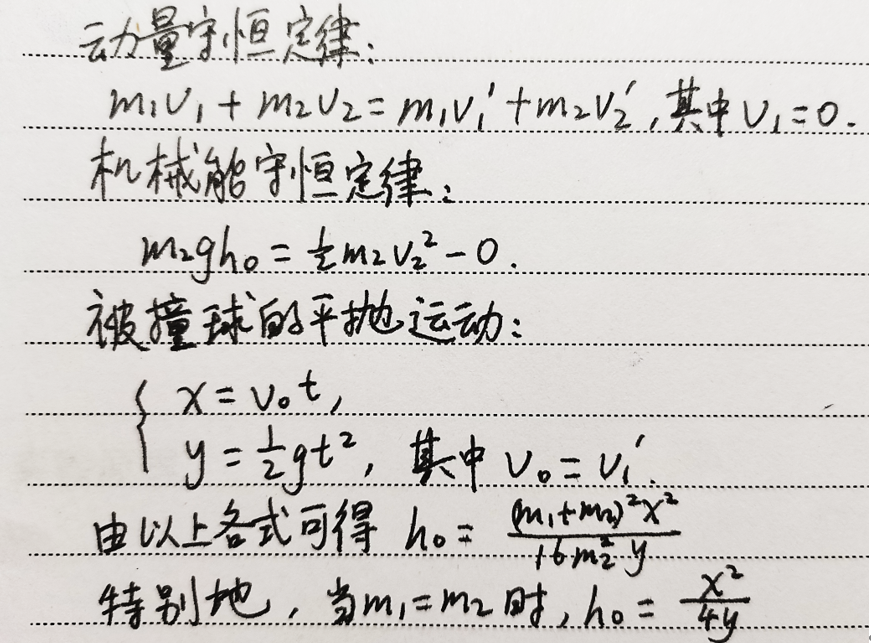 动量守恒定律:
m₁v₁+m₂v₂=m₁v₁′+m₂v₂′,其中v₁=0.
机械能守恒定律:
m₂gh₀=½m₂v₂²-0.
被撞球的平抛运动:
{ x=v₀t,
y=½gt², 其中v₀=v₁′.
由以上各式可得 h₀=(m₁+m₂)²x²/16m₂²y
特别地,当m₁=m₂时,h₀=x²/4y